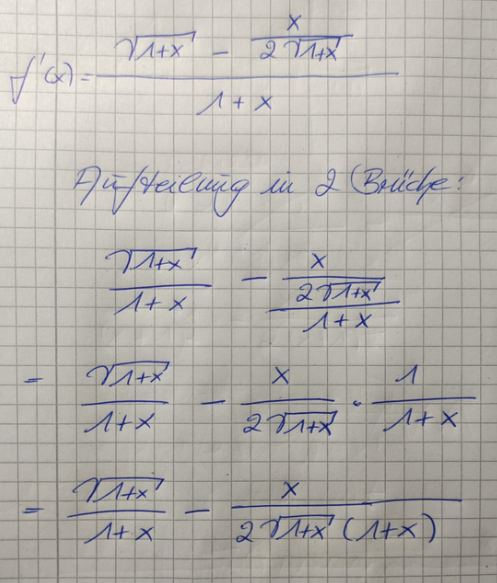 f'(x) = (√(1+x) - x/(2√(1+x)))/(1+x)
Aufteilung in 2 Brüche:
√(1+x)/(1+x) - (x/(2√(1+x)))/(1+x)
= √(1+x)/(1+x) - x/(2√(1+x)) · 1/(1+x)
= √(1+x)/(1+x) - x/(2√(1+x) (1+x))